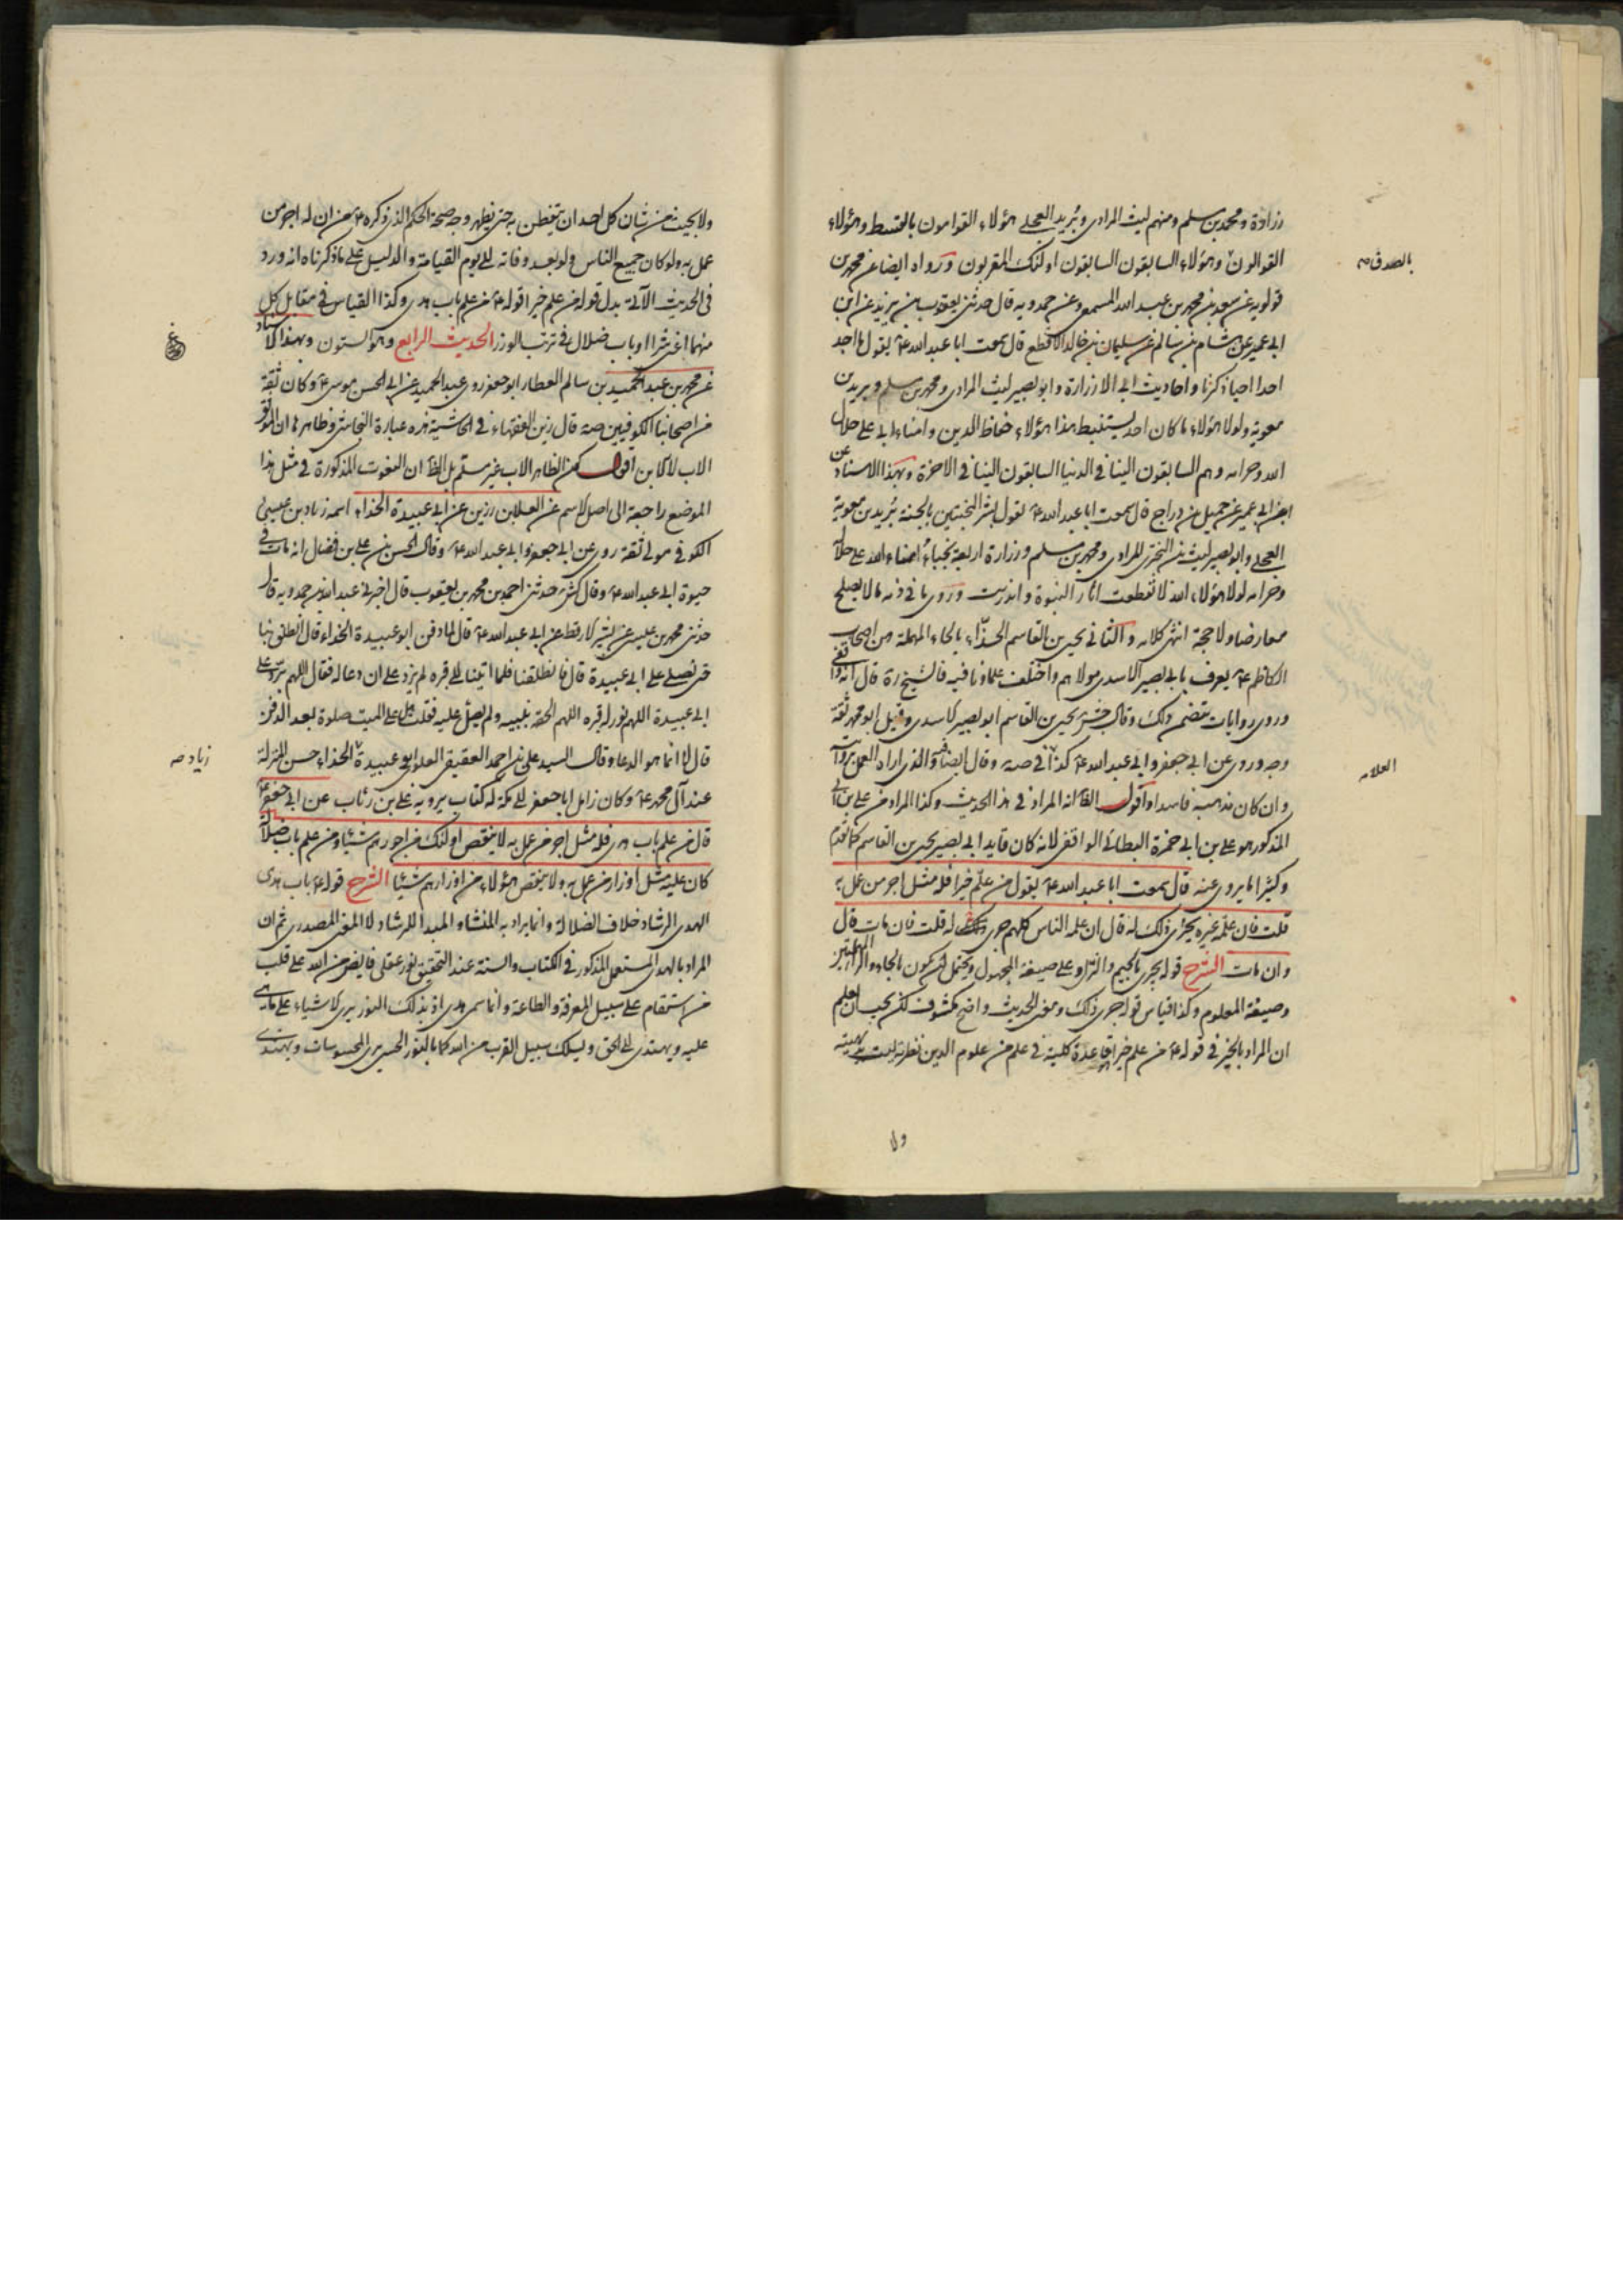 زرارة ومحمد بن مسلم ومنهم ليث المرادى وبُريد العجلى هؤلاء القوامون بالقسط وهؤلاء
القوالون وهؤلاء السابقون السابقون اولئك المقربون ورواه ايضا عن محمد بن
بالصدق صه
قولويه عن سعد بن محمد بن عبد الله المسمعى وعن حمدويه قال حدثنى يعقوب بن يزيد عن ابن
ابى عمير عن هشام بن سالم عن سليمان بن خالد الاقطع قال سمعت ابا عبد الله ع يقول ما اجد
احدا احيا ذكرنا واحاديث ابى الا زرارة وابو بصير ليث المرادى ومحمد بن مسلم وبريد بن
معوية ولولا هؤلاء ما كان احد يستنبط هذا هؤلاء حفاظ الدين وامناء ابى على حلال
الله وحرامه وهم السابقون الينا فى الدنيا السابقون الينا فى الاخرة وبهذا الاسناد عن
ابن ابى عمير عن جميل بن دراج قال سمعت ابا عبد الله ع يقول بشر المخبتين بالجنة بُريد بن معوية
العجلى وابو بصير ليث بن البخترى المرادى ومحمد بن مسلم وزرارة اربعة نجباء امناء الله على حلاله
وحرامه لولا هؤلاء انقطعت اثار النبوة واندرست وروى ما فى ذمه ما لا يصلح
معارضا ولا حجة انتهى كلامه والثانى يحيى بن القاسم الحذّاء بالحاء المهملة من اصحاب
الكاظم ع يعرف بابى بصير الاسدى مولاهم واختلف علماؤنا فيه فالشيخ ره قال انه واقفى
وروى روايات تتضمن ذلك وقال جش يحيى بن القاسم ابو بصير الاسدى وقيل ابو محمد ثقة
وجه وروى عن ابى جعفر وابى عبد الله ع كذا فى صه وقال ايضا والذى اراه العمل بروايته
العلامه
وان كان مذهبه فاسدا واقول الظ انه المراد فى هذا الحديث وكذا المراد من على بن ابى
المذكور هو على بن ابى حمزة البطائنى الواقفى لانه كان قايد ابى بصير يحيى بن القاسم كما تقدم
وكثيرا ما يروى عنه قال سمعت ابا عبد الله ع يقول من علّم خيرا فله مثل اجر من عمل به
قلت فان علّمه غيره يجرى ذلك له قال ان علمه الناس كلهم جرى له قلت فان مات قال
وان مات الشرح قوله يجرى بالجيم والراء وعلى صيغة المجهول ويحتمل ان يكون بالحاء والراء المهملتين
وصيغة المعلوم وكذا قياس قوله جرى ذلك ومعنى الحديث واضح مكشوف لكن يجب ان يعلم
ان المراد بالخير فى قوله ع من علم خيرا قاعدة كلية فى علم من علوم الدين نظرية ليست بديهية
ولا
ولا بحيث من شان كل احد ان يتفطن به حتى يظهر وجه صحة الحكم الذى ذكره ع من ان له اجر من
عمل به ولو كان جميع الناس ولو بعد وفاته الى يوم القيامة والدليل على ما ذكرناه انه ورد
فى الحديث الآتى بدل قوله من علم خيرا قوله ع من علم باب هدى وكذا القياس فى مقابل كل
منهما اعنى شرا او باب ضلال فى ترتب الوزر الحديث الرابع وهو الستون وبهذا الاسناد
عن محمد بن عبد الحميد بن سالم العطار ابو جعفر روى عبد الحميد عن ابى الحسن موسى ع وكان ثقة
من اصحابنا الكوفيين صه قال زين الفقهاء فى الحاشية هذه عبارة النجاشى وظاهرها ان الموثق
الاب لا الابن اقول كون الظاهر الاب غير مسلّم بل الظ ان النعوت المذكورة فى مثل هذا
الموضع راجعة الى اصل الاسم عن العلا بن رزين عن ابى عبيدة الحذاء اسمه زياد بن عيسى
الكوفى مولى ثقة روى عن ابى جعفر وابى عبد الله ع وقال الحسن بن على بن فضال انه مات فى
حيوة ابى عبد الله ع وقال كش حدثنى احمد بن محمد بن يعقوب قال اخبرنى عبد الله بن حمدويه قال
حدثنى محمد بن عيسى عن بشير الارقط عن ابى عبد الله ع قال لما دفن ابو عبيدة الحذاء قال انطلق بنا
حتى نصلى على ابى عبيدة قال فانطلقنا فلما اتينا الى قبره لم يزد على ان دعا له فقال اللهم برّد على
ابى عبيدة اللهم نور له قبره اللهم الحقه بنبيه ولم يصل عليه فقلت هل على الميت صلوة بعد الدفن
قال لا انما هو الدعا وقال السيد على بن احمد العقيقى العلوى ابو عبيدة الحذاء حسن المنزلة
زياد صه
عند آل محمد ع وكان زامل ابا جعفر الى مكة له كتاب يرويه على بن رئاب عن ابى جعفر ع
قال من علم باب هدى فله مثل اجر من عمل به لا ينقص اولئك من اجورهم شيئا ومن علم باب ضلال
كان عليه مثل اوزار من عمل به ولا ينقص هؤلاء من اوزارهم شيئا الشرح قوله ع باب هدى
الهدى الرشاد خلاف الضلالة وانما يراد به المنشا والمبدا للرشاد لا المعنى المصدرى ثم ان
المراد بالهدى المستعمل المذكور فى الكتاب والسنة عند التحقيق نور عقلى فايض من الله على قلب
من استقام على سبيل المعرفة والطاعة وانما سمى هدى اذ بذلك النور يرى الاشياء على ما هى
عليه ويهتدى الى الحق ويسلك سبيل القرب من الله كما بالنور الحسى يرى المحسوسات ويهتدى